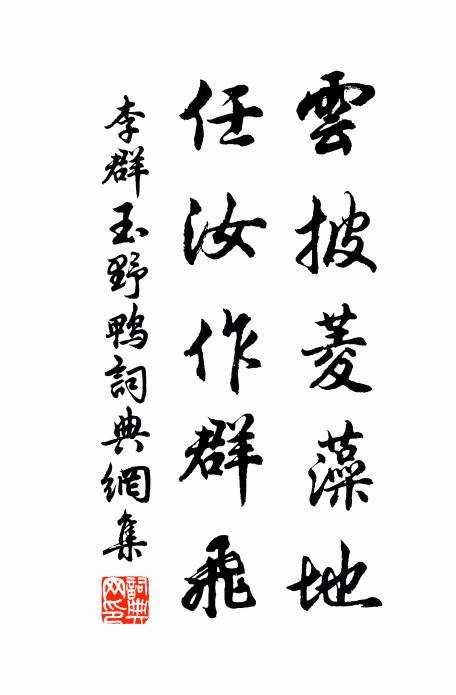 雲披菱藻地
任汝作群飛
李群玉野鴨詞典網集
詞典網印